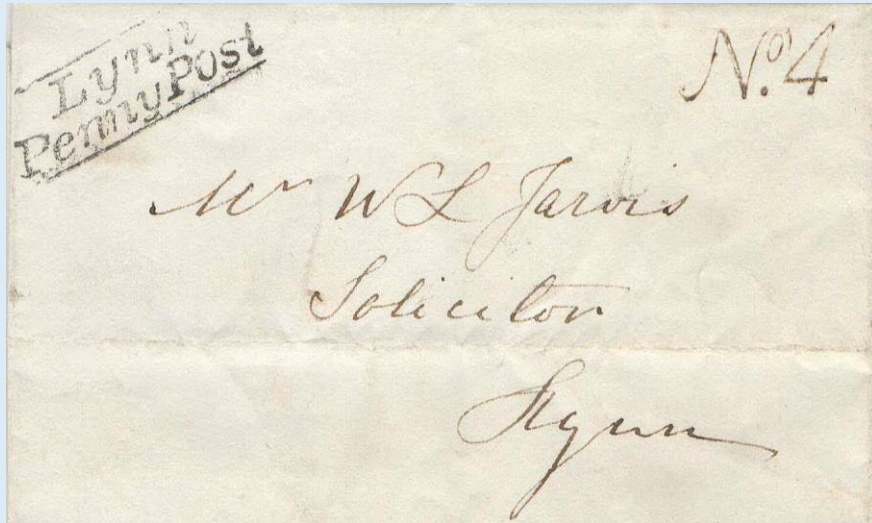 Lynn
Penny Post
No. 4
Mr W L Jarvis
Solicitor
Lynn